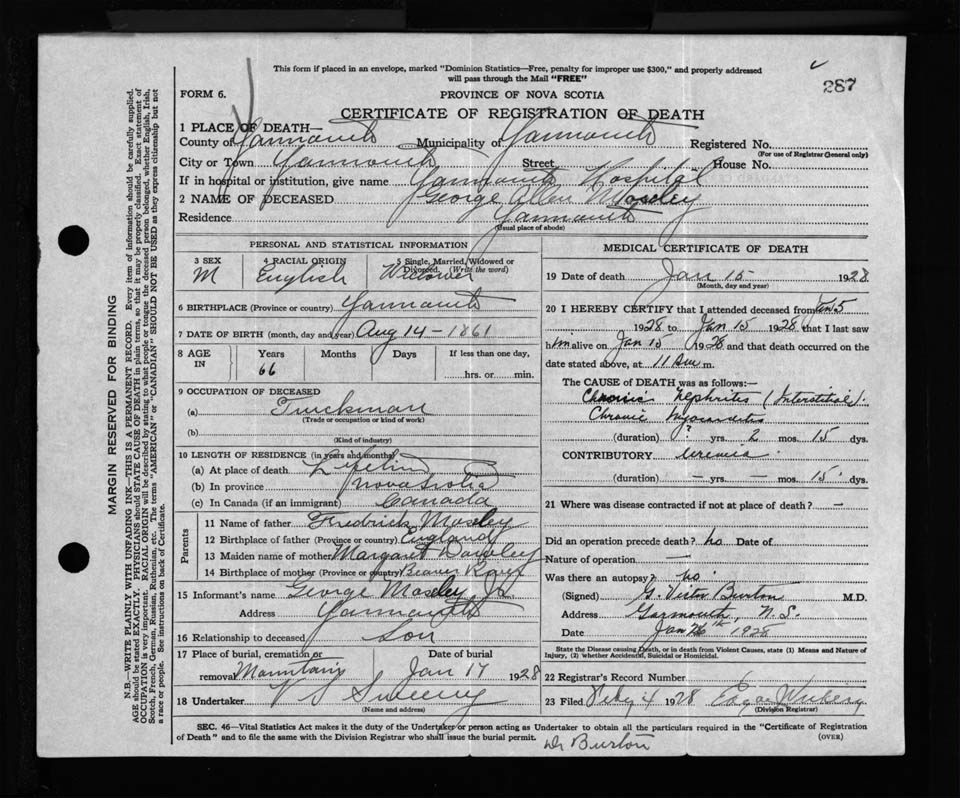 This form if placed in an envelope, marked "Dominion Statistics—Free, penalty for improper use $300," and properly addressed
will pass through the Mail "FREE"
287
FORM 6.
PROVINCE OF NOVA SCOTIA
CERTIFICATE OF REGISTRATION OF DEATH
1 PLACE OF DEATH—
County of Yarmouth Municipality of Yarmouth Registered No.
(For use of Registrar General only)
City or Town Yarmouth Street House No.
If in hospital or institution, give name Yarmouth Hospital
2 NAME OF DECEASED George Allen Moseley
Residence Yarmouth
(Usual place of abode)
PERSONAL AND STATISTICAL INFORMATION
3 SEX 4 RACIAL ORIGIN 5 Single, Married, Widowed or
Divorced. (Write the word)
M English Widower
6 BIRTHPLACE (Province or country) Yarmouth
7 DATE OF BIRTH (month, day and year) Aug 14 - 1861
8 AGE IN Years Months Days If less than one day,
66
hrs. or min.
9 OCCUPATION OF DECEASED
(a) Truckman
(Trade or occupation or kind of work)
(b)
(Kind of industry)
10 LENGTH OF RESIDENCE (in years and months)
(a) At place of death Lifetime
(b) In province Nova Scotia
(c) In Canada (if an immigrant) Canada
Parents
11 Name of father Fredrick Moseley
12 Birthplace of father (Province or country) England
13 Maiden name of mother Margaret
14 Birthplace of mother (Province or country) Beaver River
15 Informant's name George Moseley Jr
Address Yarmouth
16 Relationship to deceased Son
17 Place of burial, cremation or removal Mountain Date of burial Jan 17 1928
18 Undertaker V S Sweeny
(Name and address)
MEDICAL CERTIFICATE OF DEATH
19 Date of death Jan 15 1928
(Month, day and year)
20 I HEREBY CERTIFY that I attended deceased from Jan 5
1928 to Jan 15 1928 that I last saw
him alive on Jan 15 1928 and that death occurred on the
date stated above, at 11 m.
The CAUSE OF DEATH was as follows:—
Chronic Nephritis (Interstitial).
Chronic Myocarditis
(duration) ? yrs. 2 mos. 15 dys.
CONTRIBUTORY uremia.
(duration) — yrs. — mos. 15 dys.
21 Where was disease contracted if not at place of death? —
Did an operation precede death? no Date of
Nature of operation —
Was there an autopsy? no
(Signed) G. Victor Burton M.D.
Address Yarmouth, N.S.
Date Jan 1928
State the Disease causing Death, or in death from Violent Causes, state (1) Means and Nature of
Injury, (2) whether Accidental, Suicidal or Homicidal.
22 Registrar's Record Number
23 Filed Feby 4 1928
(Division Registrar)
SEC. 46—Vital Statistics Act makes it the duty of the Undertaker or person acting as Undertaker to obtain all the particulars required in the "Certificate of Registration
of Death" and to file the same with the Division Registrar who shall issue the burial permit.
(OVER)
Dr Burton
MARGIN RESERVED FOR BINDING
N.B.—WRITE PLAINLY WITH UNFADING INK—THIS IS A PERMANENT RECORD. Every item of information should be carefully supplied.
AGE should be stated EXACTLY. PHYSICIANS should STATE CAUSE OF DEATH in plain terms, so that it may be properly classified. Exact statement of
OCCUPATION is very important. RACIAL ORIGIN will be described by stating to what people or tongue the deceased person belonged, whether English, Irish,
Scotch, French, German, Russian, Ruthenian, etc. The terms "AMERICAN" or "CANADIAN" SHOULD NOT BE USED as they express citizenship but not
a race or people. See instructions on back of Certificate.